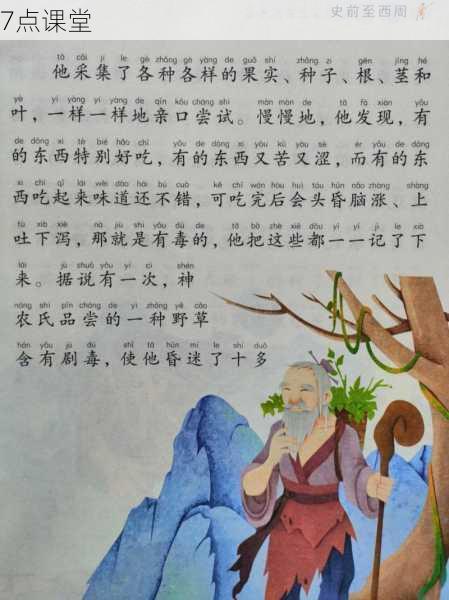 7点课堂
史前至西周
tā cǎi jí le gè zhǒng gè yàng de guǒ shí zhǒng zi gēn jīng hé
他采集了各种各样的果实、种子、根、茎和
yè yí yàng yí yàng de qīn kǒu cháng shì màn màn de tā fā xiàn yǒu
叶，一样一样地亲口尝试。慢慢地，他发现，有
de dōng xi tè bié hǎo chī yǒu de dōng xi yòu kǔ yòu sè ér yǒu de dōng
的东西特别好吃，有的东西又苦又涩，而有的东
xi chī qǐ lái wèi dào hái bú cuò kě chī wán hòu huì tóu hūn nǎo zhàng shàng
西吃起来味道还不错，可吃完后会头昏脑涨、上
tù xià xiè nà jiù shì yǒu dú de tā bǎ zhè xiē dōu yī yī jì le xià
吐下泻，那就是有毒的，他把这些都一一记了下
lái jù shuō yǒu yí cì shén
来。据说有一次，神
nóng shì pǐn cháng de yì zhǒng yě cǎo
农氏品尝的一种野草
hán yǒu jù dú shǐ tā hūn mí le shí duō
含有剧毒，使他昏迷了十多